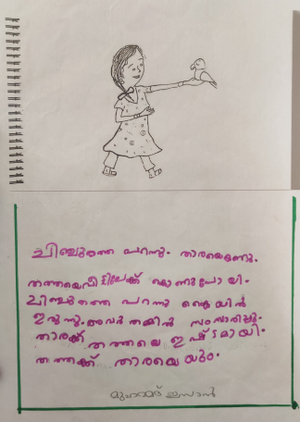 ചിഞ്ചുതത്ത പറന്നു. താരയെകണ്ടു.
തത്തയെവീട്ടിലേക്ക് കൊണ്ടുപോയി.
ചിഞ്ചുതത്ത പറന്നു കൈയിൽ
ഇരുന്നു. അവർ തമ്മിൽ സംസാരിച്ചു.
താരക്ക് തത്തയെ ഇഷ്ടമായി.
തത്തക്ക് താരയെയും.
മുഹമ്മദ് ഇസാൻ